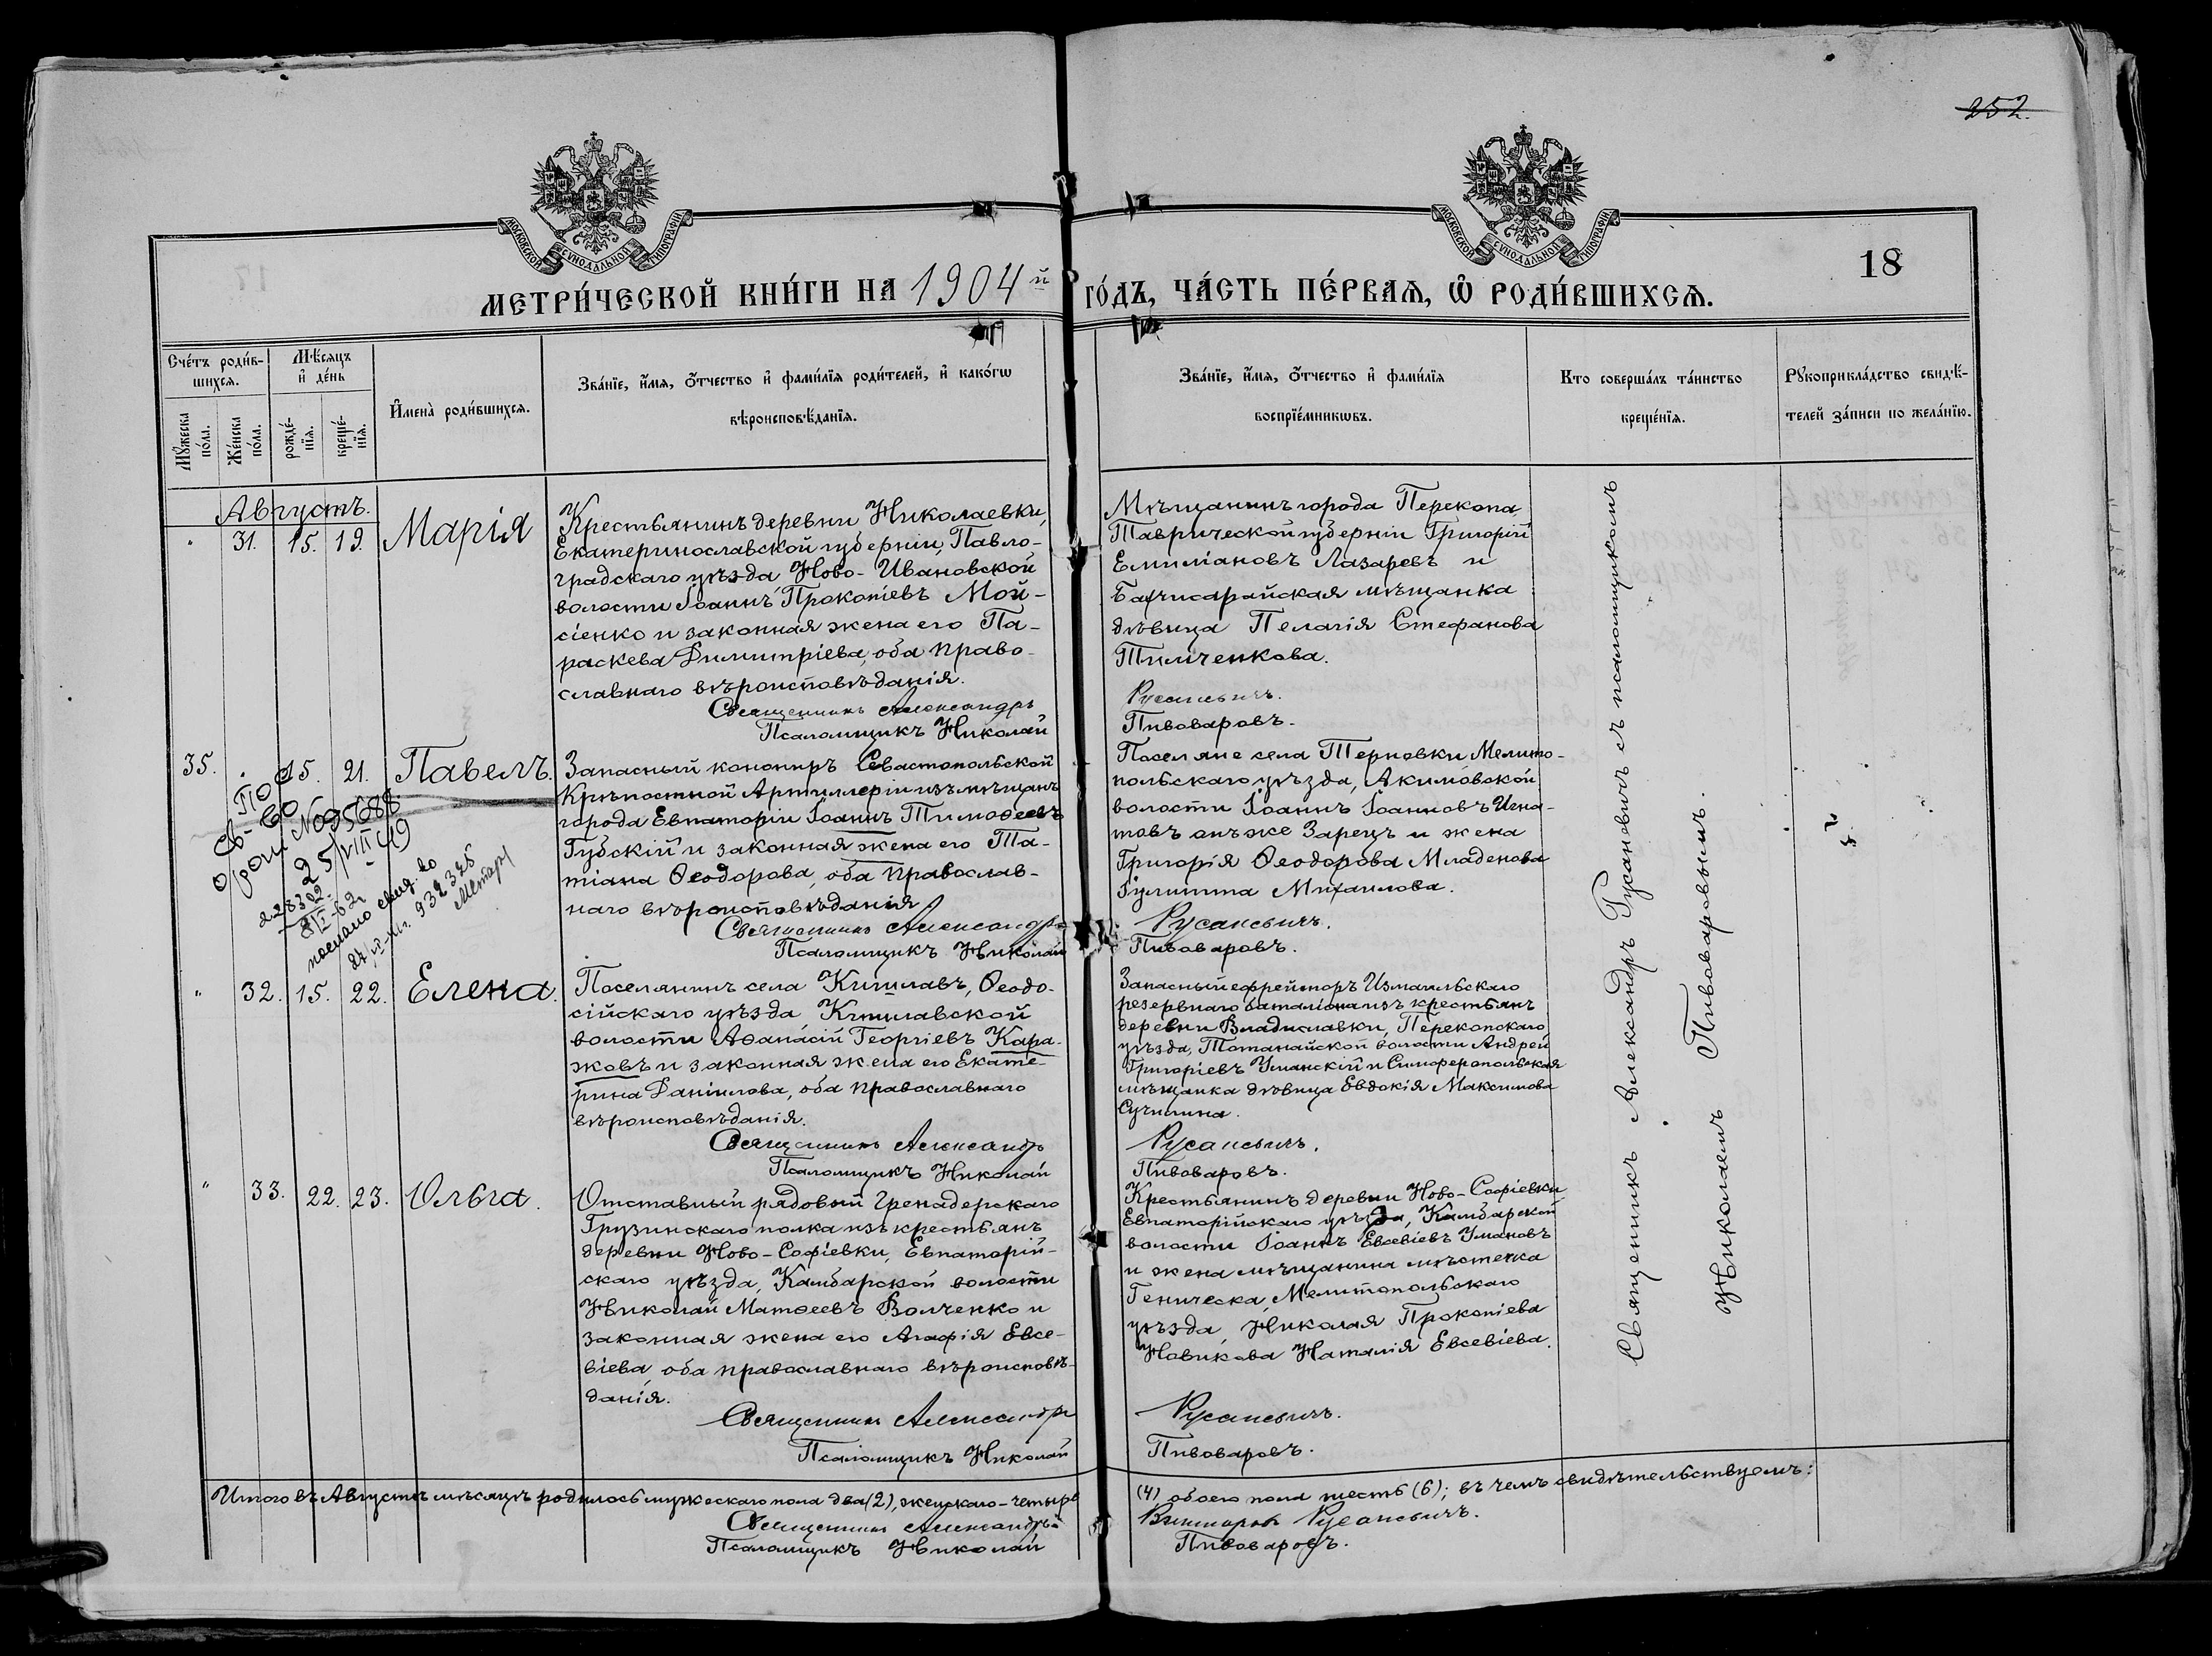 252.
МОСКОВСКОЙ СѴНОДАЛЬНОЙ ТИПОГРАФІИ
МОСКОВСКОЙ СѴНОДАЛЬНОЙ ТИПОГРАФІИ
18
МЕТРИ́ЧЕСКОЙ КНИ́ГИ НА 1904й ГО́ДЪ, ЧА́СТЬ ПЕ́РВАѦ, Ѡ҆ РОДИ́ВШИХСѦ.
Сче́тъ роди́в-
шихсѧ.
Мꙋ́жеска по́ла.
Же́нска по́ла.
Мѣ́сѧцъ и҆ де́нь
рожде́-
нїѧ.
креще́-
нїѧ.
И҆мена̀ роди́вшихсѧ.
Зва́нїе, и҆́мѧ, ѻ҆́тчество и҆ фами́лїѧ роди́телей, и҆ како́гѡ
вѣроисповѣ́данїѧ.
Зва́нїе, и҆́мѧ, ѻ҆́тчество и҆ фами́лїѧ
воспрїе́мникѡвъ.
Кто соверша́лъ та́инство
креще́нїѧ.
Рꙋкоприкла́дство свидѣ́-
телей за́писи по жела́нїю.
Августъ.
" 31. 15. 19. Марія
Крестьянинъ деревни Николаевки,
Екатеринославской губерніи, Павло-
градскаго уѣзда, Ново-Ивановской
волости Іоаннъ Прокопіевъ Мой-
сіенко и законная жена его Па-
раскева Димитріева, оба право-
славнаго вѣроисповѣданія.
Священникъ Александръ
Псаломщикъ Николай
Мѣщанинъ города Перекопа
Таврической губерніи Григорій
Емиліановъ Лазаревъ и
Бахчисарайская мѣщанка
дѣвица Пелагія Стефанова
Тимченкова.
Русаневичъ.
Пивоваровъ.
35. " 15. 21. Павелъ.
Запасный канониръ Севастопольской
Крѣпостной Артиллеріи изъ мѣщанъ
города Евпаторіи Іоаннъ Тимоѳеевъ
Губскій и законная жена его Та-
тіана Ѳеодорова, оба православ-
наго вѣроисповѣданія
Священникъ Александръ
Псаломщикъ Николай
Поселяне села Терновки Мелито-
польскаго уѣзда, Акимовской
волости Іоаннъ Іоанновъ Игна-
товъ онъ же Зарецъ и жена
Григорія Ѳеодорова Младенова
Михаилова.
Русаневичъ.
Пивоваровъ.
25/VIII 49
22832
послано свид. во
932325
" 32. 15. 22. Елена.
Поселянинъ села Кишлавъ, Ѳеодо-
сійскаго уѣзда, Кишлавской
волости Аѳанасій Георгіевъ Кара-
жовъ и законная жена его Екате-
рина Даніилова, оба православнаго
вѣроисповѣданія.
Священникъ Александръ
Псаломщикъ Николай
Запасный ефрейторъ Измаильскаго
резервнаго баталіона изъ крестьянъ
деревни Владиславки, Перекопскаго
уѣзда, Тотанайской волости Андрей
Григоріевъ Уманскій и Симферопольская
мѣщанка дѣвица Евдокія Максимова
Сучилина.
Русаневичъ.
Пивоваровъ.
" 33. 22. 23. Ольга.
Отставный рядовый Гренадерскаго
Грузинскаго полка изъ крестьянъ
деревни Ново-Софіевки, Евпаторій-
скаго уѣзда, Камбарской волости
Николай Матѳеевъ Волченко и
законная жена его Агафія Евсе-
віева, оба православнаго вѣроисповѣ-
данія.
Священникъ Александръ
Псаломщикъ Николай
Крестьянинъ деревни Ново-Софіевки
Евпаторійскаго уѣзда, Камбарской
волости Іоаннъ Евсевіевъ Умановъ
и жена мѣщанина мѣстечка
Геническа, Мелитопольскаго
уѣзда, Николая Прокопіева
Новикова Наталія Евсевіева.
Русаневичъ.
Пивоваровъ.
Священникъ Александръ Русаневичъ съ псаломщикомъ
Николаемъ Пивоваровымъ.
Итого въ Августѣ мѣсяцѣ родилось мужескаго пола два (2), женскаго - четыре (4), обоего пола шесть (6); въ чемъ свидѣтельствуемъ:
Священникъ Александръ Русаневичъ.
Псаломщикъ Николай Пивоваровъ.